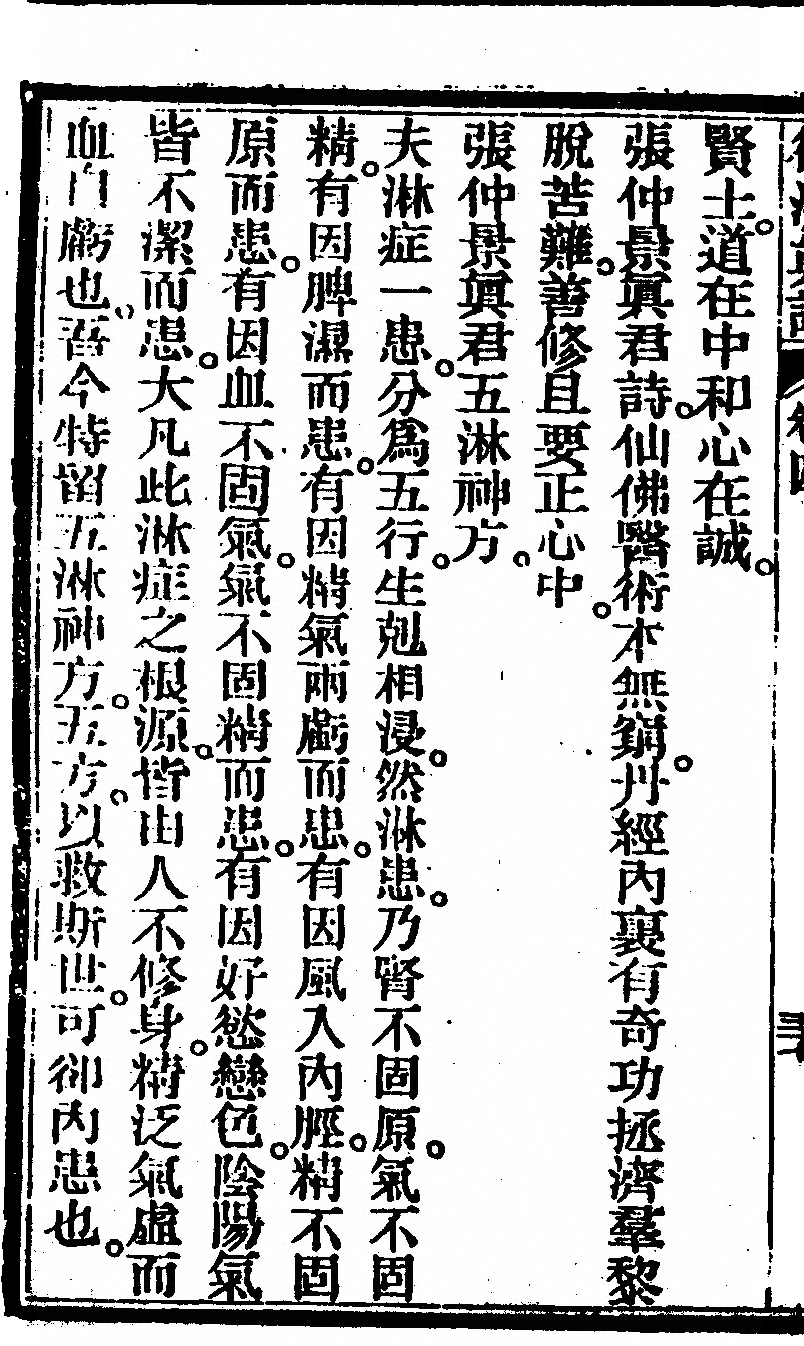 賢士。道在中和心在誠。
張仲景眞君詩。仙佛醫術本無窮。丹經內裏有奇功拯濟羣黎
脫苦難。善修且要正心中。
張仲景眞君五淋神方。
夫淋症一患。分爲五行。生剋相浸。然淋患。乃腎不固原。氣不固
精。有因脾濕而患。有因精氣兩虧而患。有因風入內脛。精不固
原而患。有因血不固氣。氣不固精而患。有因好慾戀色。陰陽氣
皆不潔而患。大凡此淋症之根源。皆由人不修身。精泛氣虛而
血自虧也。吾今特留五淋神方。五方。以救斯世。可卻內患也。
卷四